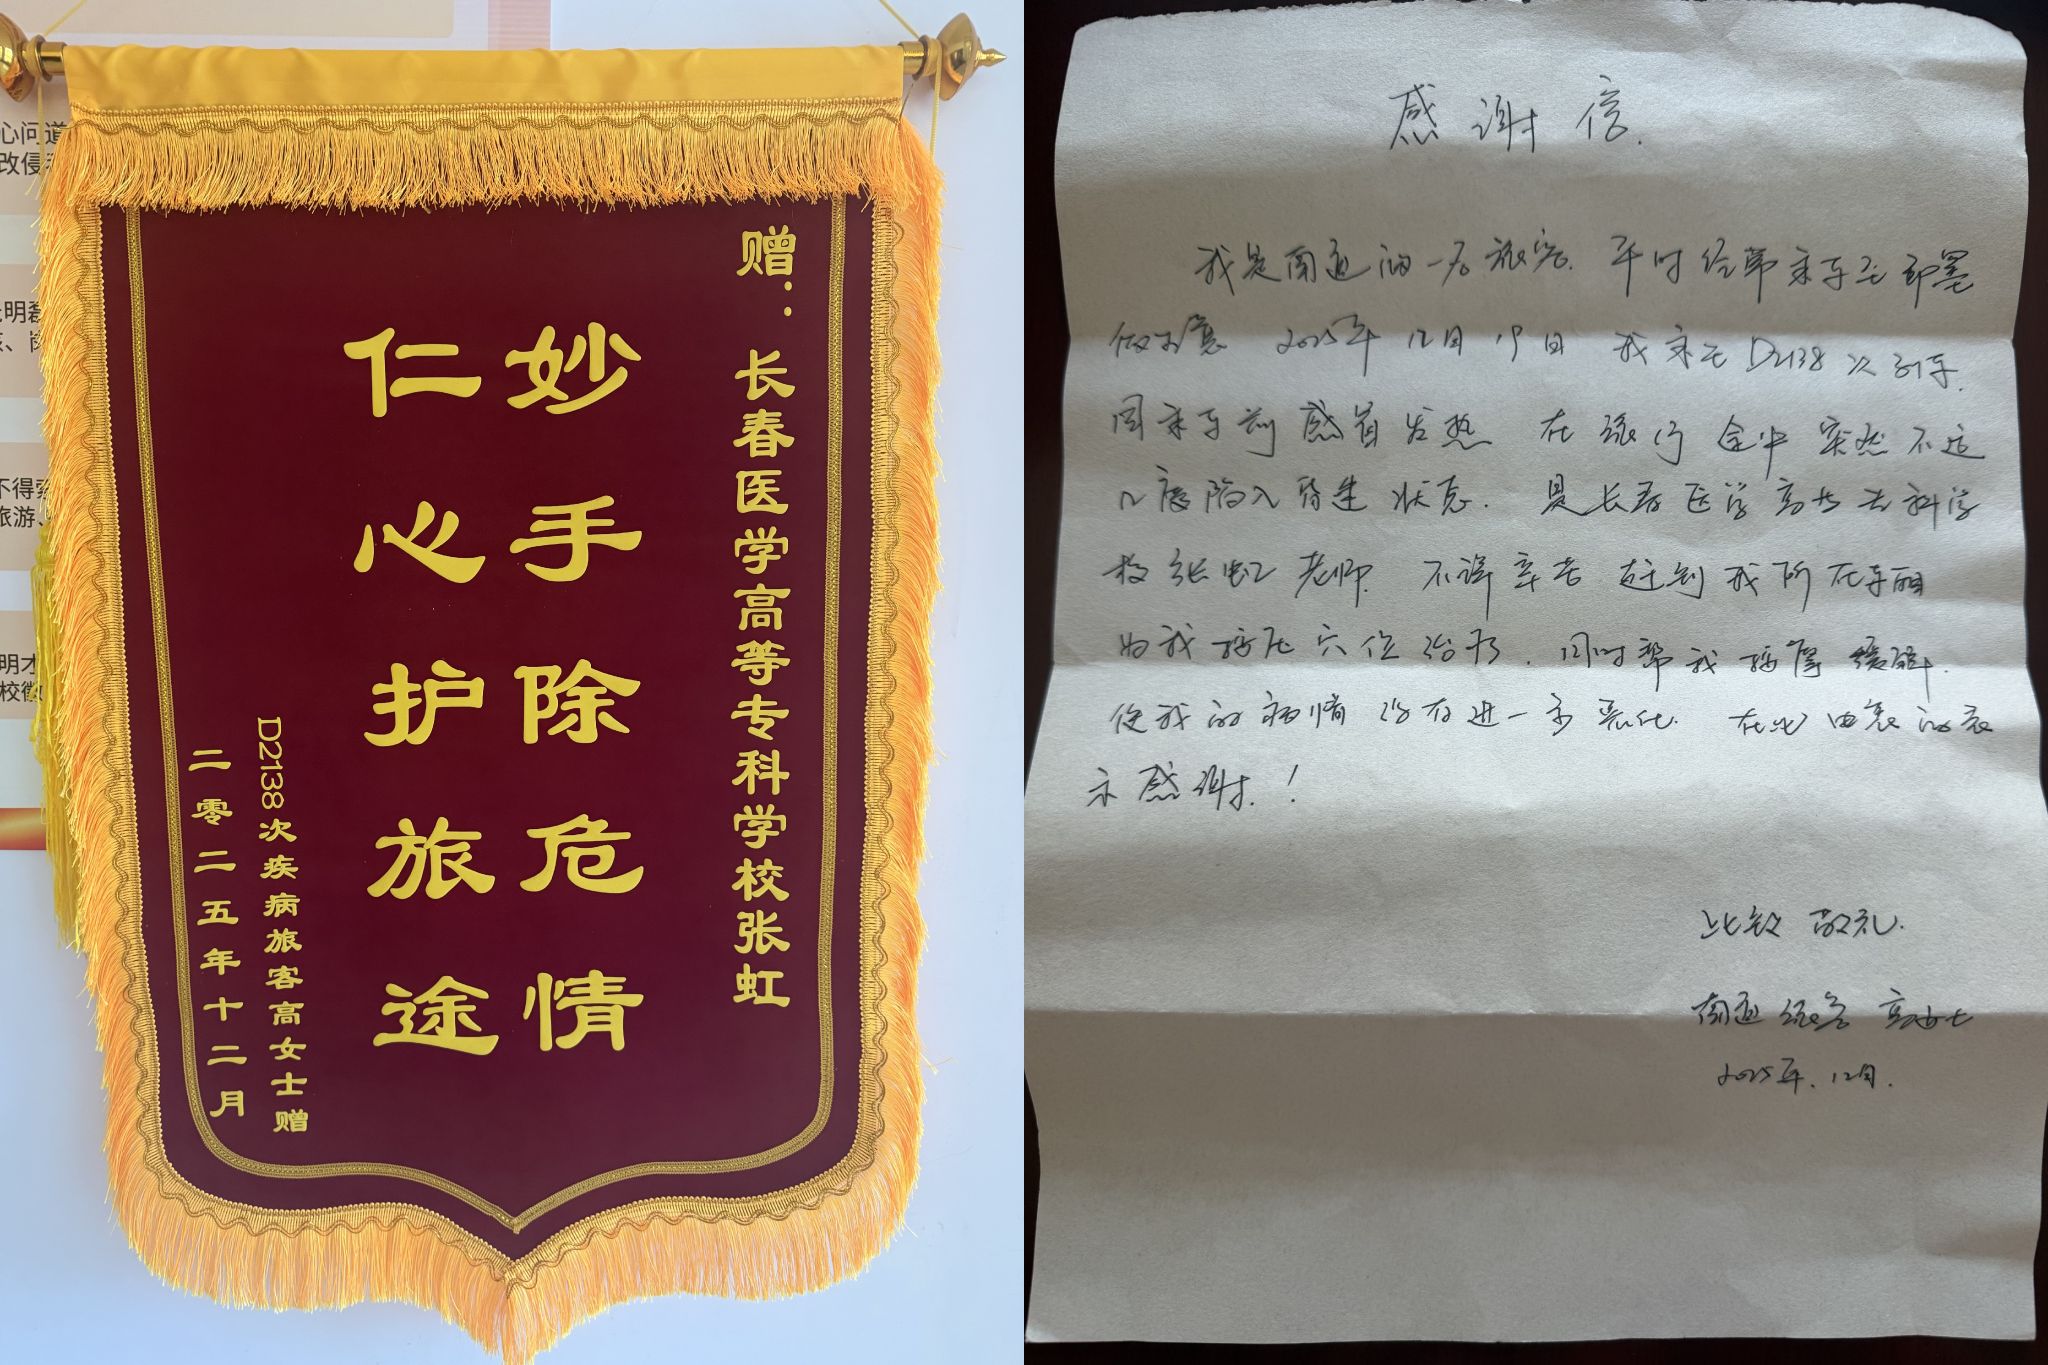 赠：长春医学高等专科学校张虹
妙手除危情
仁心护旅途
D2138次疾病旅客高女士赠
二零二五年十二月
心问道
改侵
明磊
不得索
旅游、
明才
校徽
感谢信.
我是南通的一名旅客. 平时经常乘车去即墨
做生意 2025年12月19日 我乘坐D2138次列车.
因乘车前感冒发热 在旅行途中突然不适
几度陷入昏迷状态. 是长春医学高等专科学
校张虹老师. 不辞辛苦 赶到我所在车厢
为我按压穴位治疗. 同时帮我按摩缓解.
使我的病情没有进一步恶化. 在此由衷的表
示感谢.！
此致 敬礼.
南通旅客 高女士
2025年.12月.